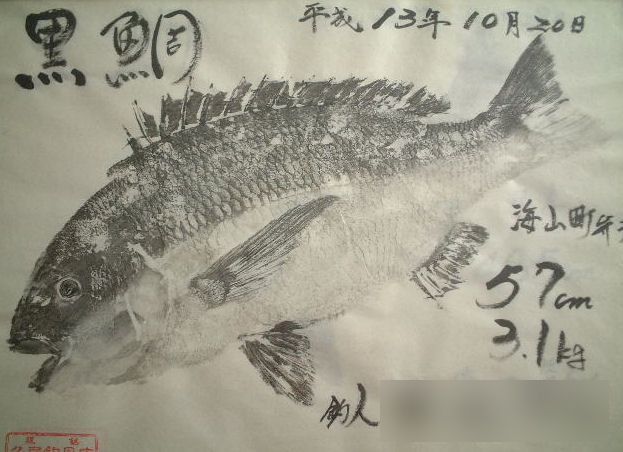 黒鯛
平成13年10月20日
海山町
57cm
3.1kg
釣人